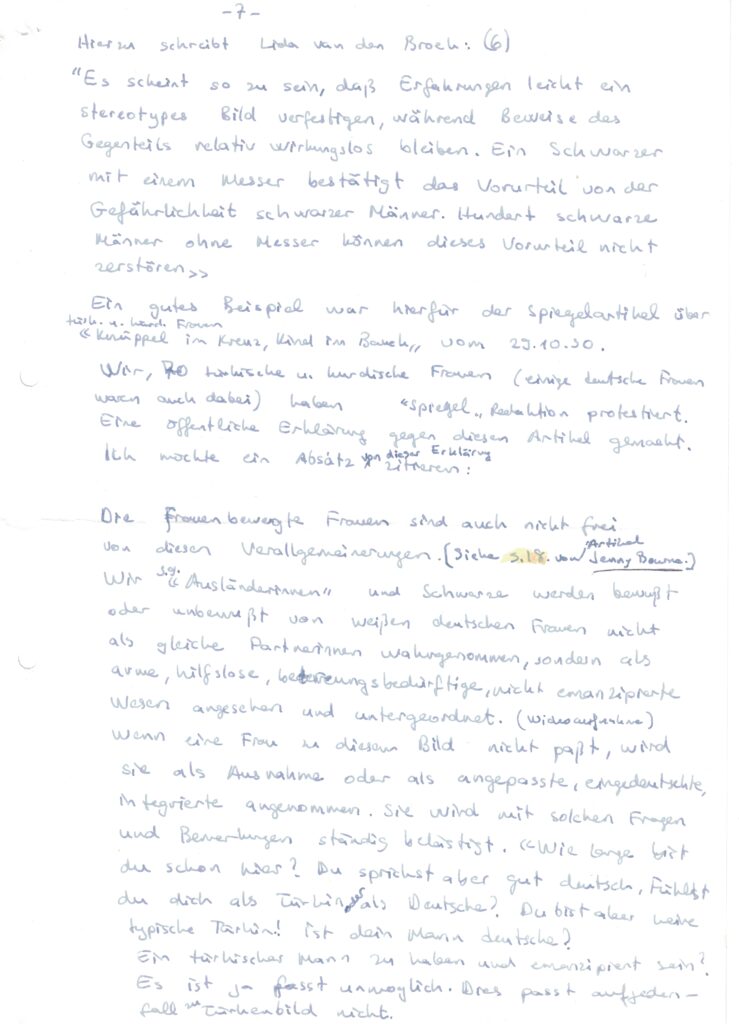 -7-
Hierzu schreibt Lida van den Broek: (6)
"Es scheint so zu sein, daß Erfahrungen leicht ein
stereotypes Bild verfestigen, während Beweise des
Gegenteils relativ wirkungslos bleiben. Ein Schwarzer
mit einem Messer bestätigt das Vorurteil von der
Gefährlichkeit schwarzer Männer. Hundert schwarze
Männer ohne Messer können dieses Vorurteil nicht
zerstören>>
Ein gutes Beispiel war hierfür der Spiegelartikel über
türk. u. kurd. Frauen
"Knüppel im Kreuz, Kind im Bauch,, vom 29.10.90.
Wir, 70 türkische u. kurdische Frauen (einige deutsche Frauen
waren auch dabei) haben "Spiegel,, Redaktion protestiert.
Eine öffentliche Erklärung gegen diesen Artikel gemacht.
Ich möchte ein Absatz von dieser Erklärung zitieren:
Die Frauenbewegte Frauen sind auch nicht frei
von diesen Verallgemeinerungen. (Siehe S.18. von Artikel Jenny Bourne.)
Wir s.g. "Ausländerinnen" und Schwarze werden bewußt
oder unbewußt von weißen deutschen Frauen nicht
als gleiche Partnerinnen wahrgenommen, sondern als
arme, hilfslose, betreuungsbedürftige, nicht emanzipierte
Wesen angesehen und untergeordnet. (Videoaufnahme)
Wenn eine Frau zu diesem Bild nicht paßt, wird
sie als Ausnahme oder als angepasste, eingedeutschte,
integrierte angenommen. Sie wird mit solchen Fragen
und Bemerkungen ständig belästigt. "Wie lange bist
du schon hier? Du sprichst aber gut deutsch, Fühlst
du dich als Türkin oder als Deutsche? Du bist aber keine
typische Türkin! ist dein Mann deutsche?
Ein türkischer Mann zu haben und emanzipiert sein?
Es ist ja fasst unmöglich. Dies passt aufjeden-
fall zu Türkenbild nicht.